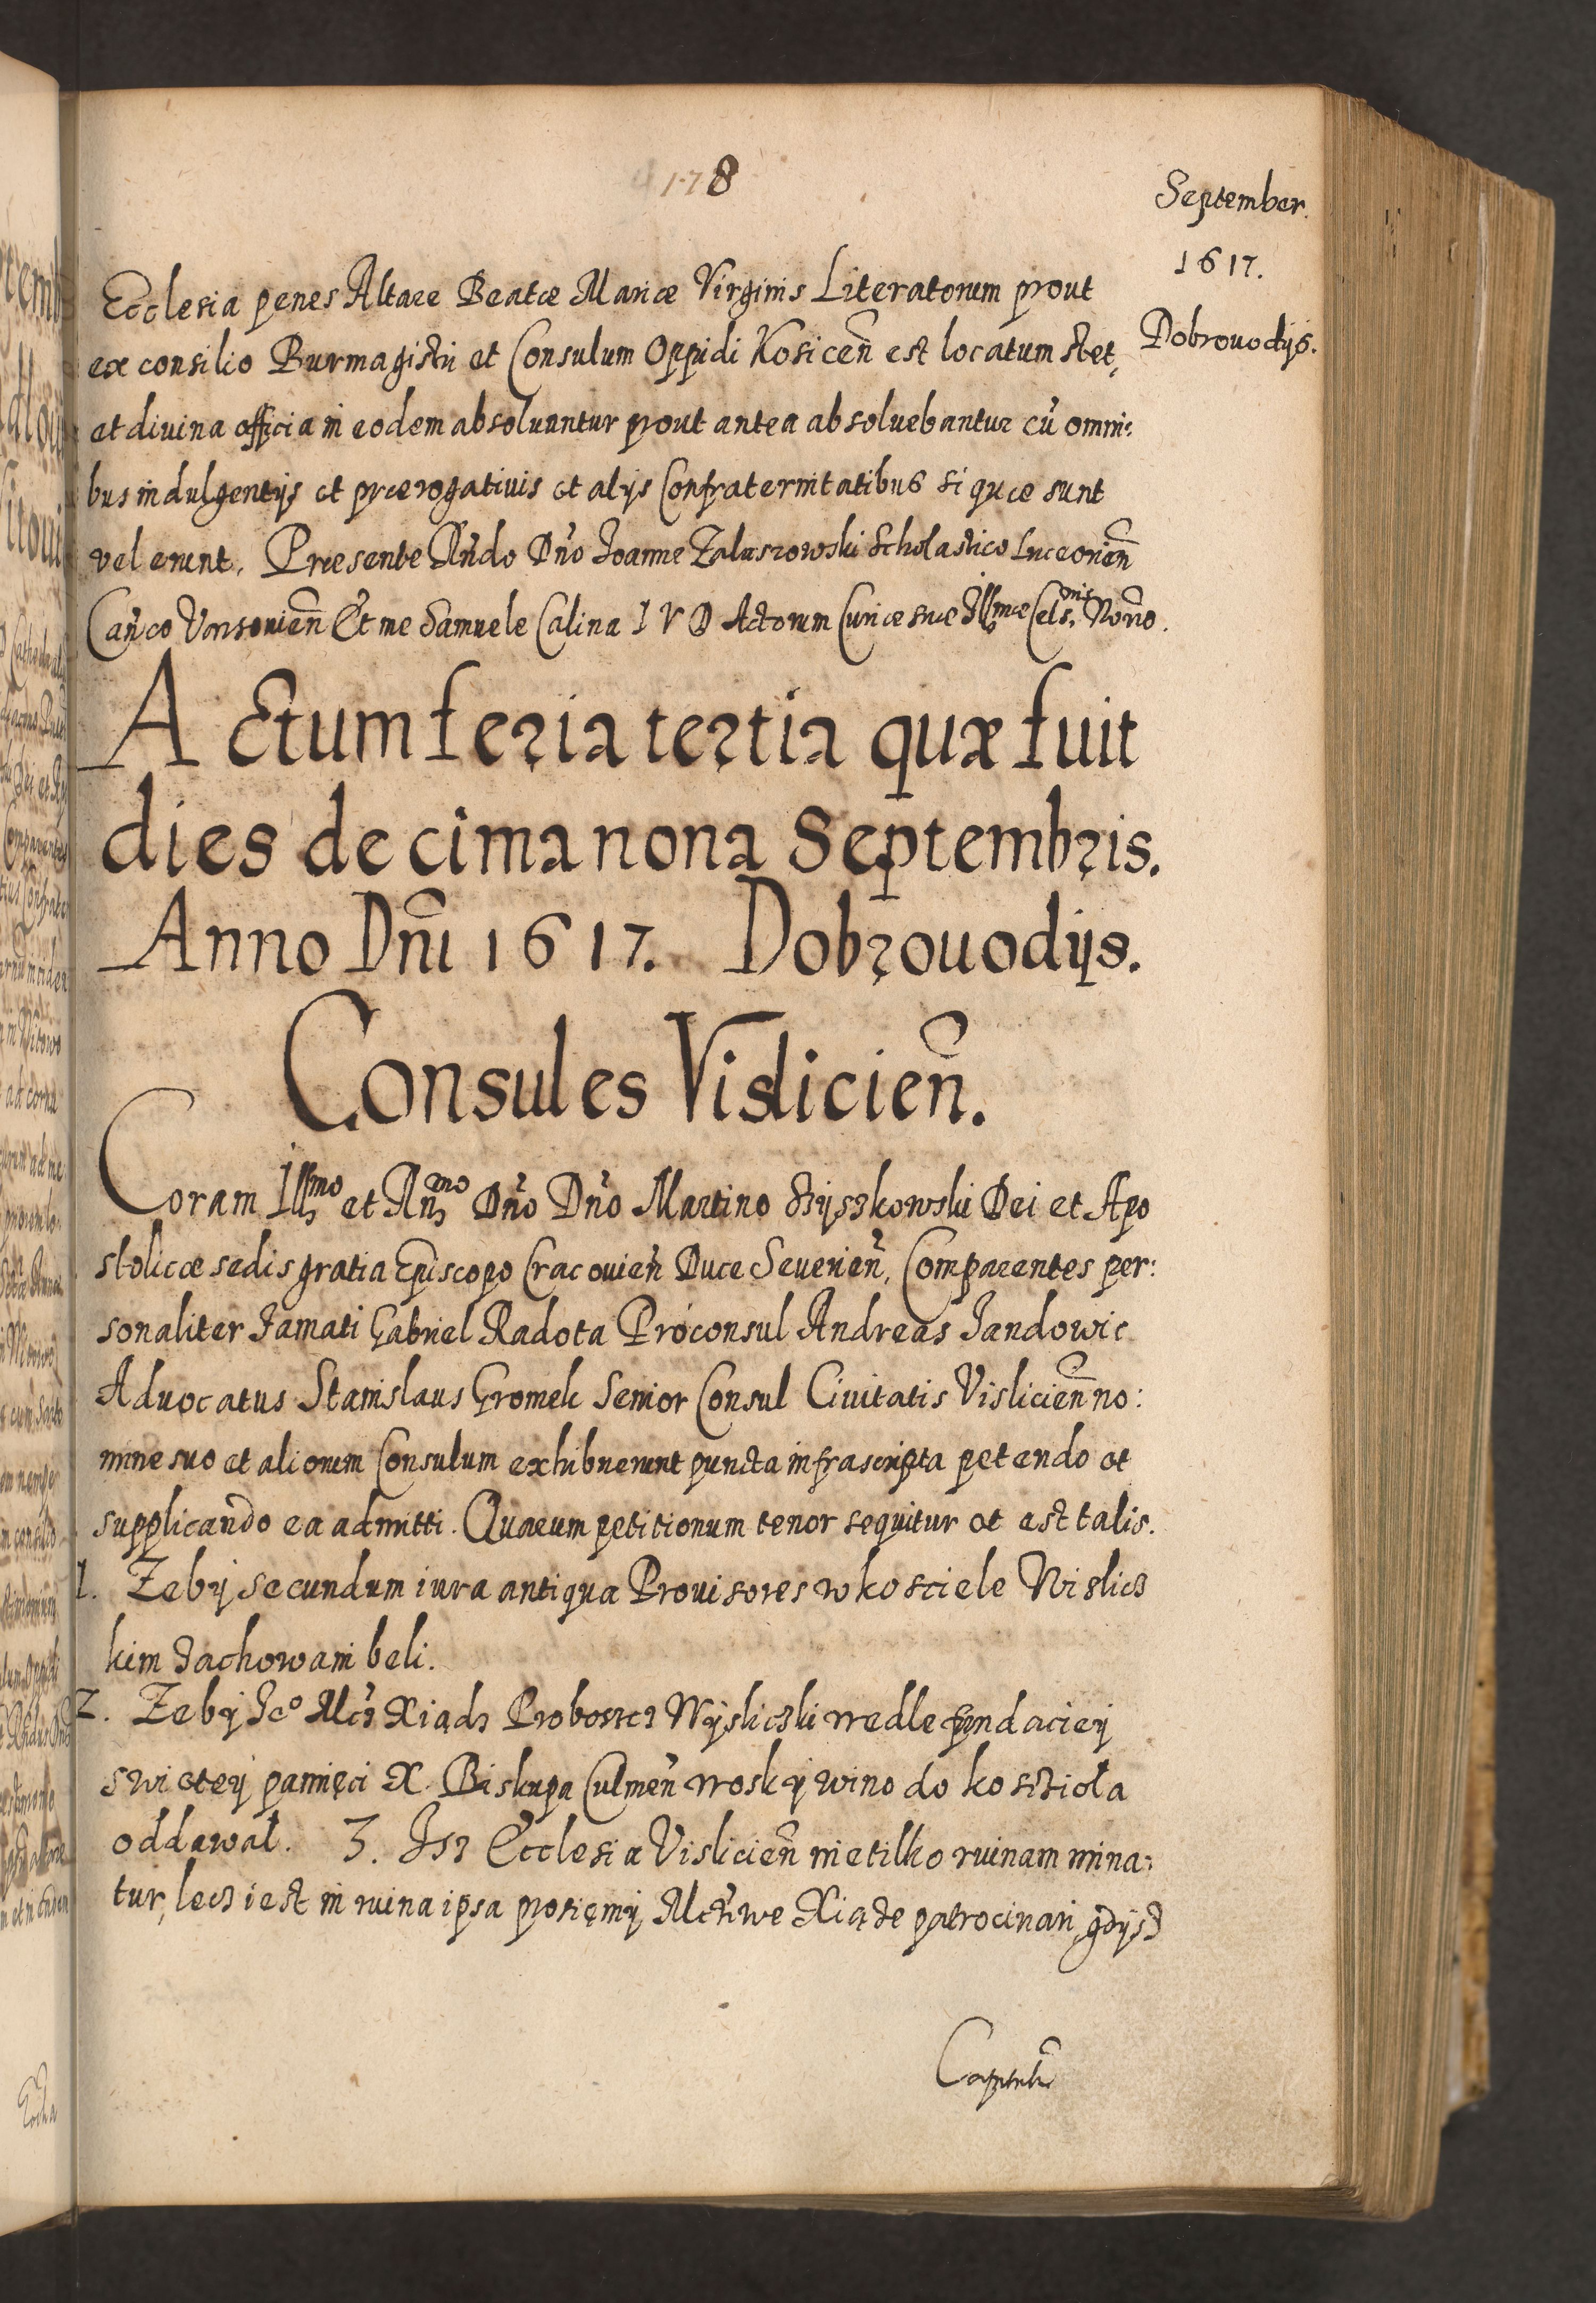 178
September.
1617.
Dobrouodijs.
Ecclesia penes Altare Beatæ Mariæ Virginis Literatorum prout
ex consilio Burmagistri et Consulum Oppidi Kosicen̄ est locatum stet,
et diuina officia in eodem absoluantur prout antea absoluebantur cū omni:
bus indulgentijs et prærogatiuis et alijs Confraternitatibus si quæ sunt
vel erunt. Præsente Rn̄do Dn̄o Joanne Zaluszowski Scholastico Luceorien̄
Can̄co Varsouien̄ Et me Samuele Calina I V D Actorum Curiæ suæ Illmæ Cels.nis Norio.
Actum feria tertia quæ fuit
dies decima nona Septembris.
Anno Dn̄i 1617. Dobrouodijs.
Consules Vislicien̄.
Coram Illmo et Rn̄mo Dn̄o Dn̄o Martino Szyszkowski Dei et Apo
stolicæ sedis gratia Episcopo Cracouien̄ Duce Seuerien̄, Comparentes per:
sonaliter famati Gabriel Radota Proconsul Andreas Jandowic
Aduocatus Stanislaus Gromek Senior Consul Ciuitatis Vislicien̄ no:
mine suo et aliorum Consulum exhibuerunt puncta infrascripta petendo et
supplicando ea admitti. Quarum petitionum tenor sequitur et est talis.
1. Zeby secundum iura antiqua Prouisores w kosciele Wislicz
kim zachowani beli.
2. Zeby Jeo Mcz Xiadz Proboszcz Wysliczki wedle fundaciey
swietey pamięci X. Biskupa Culmen̄ wosky wino do kosziola
oddawał. 3. Isz Ecclesia Vislicien̄ nie tilko ruinam mina:
tur, lecz iest in ruina ipsa prosięmy Mcziwe Xiąze patrocinari, gdysz